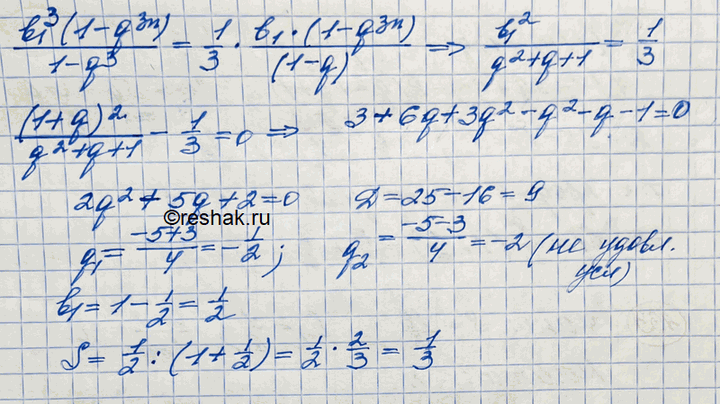 b₁³(1-q³ⁿ)/(1-q³) = 1/3 · b₁·(1-q³ⁿ)/(1-q) ⇒ b₁²/(q²+q+1) = 1/3
(1+q)²/(q²+q+1) - 1/3 = 0 ⇒ 3+6q+3q²-q²-q-1=0
2q²+5q+2=0 D=25-16=9
©reshak.ru
q₁ = (-5+3)/4 = -1/2; q₂ = (-5-3)/4 = -2 (не удовл.
усл)
b₁ = 1 - 1/2 = 1/2
S = 1/2 : (1+1/2) = 1/2 · 2/3 = 1/3